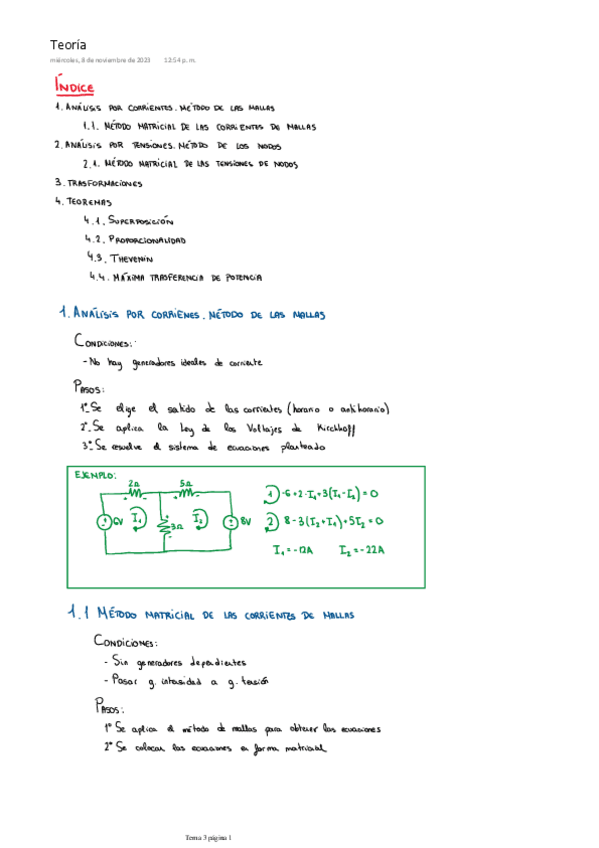 Teoría
miércoles, 8 de noviembre de 2023 12:54 p. m.
ÍNDICE
1. ANÁLISIS POR CORRIENTES. MÉTODO DE LAS MALLAS
1.1. MÉTODO MATRICIAL DE LAS CORRIENTES DE MALLAS
2. ANÁLISIS POR TENSIONES. MÉTODO DE LOS NODOS
2.1. MÉTODO MATRICIAL DE LAS TENSIONES DE NODOS
3. TRASFORMACIONES
4. TEOREMAS
4.1. SUPERPOSICIÓN
4.2. PROPORCIONALIDAD
4.3. THEVENIN
4.4. MÁXIMA TRASFERENCIA DE POTENCIA
1. ANÁLISIS POR CORRIENES. MÉTODO DE LAS MALLAS
CONDICIONES:
- No hay generadores ideales de corriente
PASOS:
1º Se elige el sentido de las corrientes (horario o antihorario)
2º Se aplica la Ley de los Voltajes de Kirchhoff
3º Se resuelve el sistema de ecuaciones planteado
EJEMPLO:
2Ω 5Ω
6V I₁ 3Ω I₂ 8V
1) -6+2·I₁+3(I₁-I₂)=0
2) 8-3(I₂+I₁)+5I₂=0
I₁=-12A I₂=-22A
1.1 MÉTODO MATRICIAL DE LAS CORRIENTES DE MALLAS
CONDICIONES:
- Sin generadores dependientes
- Pasar g. intensidad a g. tensión
PASOS:
1º Se aplica el método de mallas para obtener las ecuaciones
2º Se colocan las ecuaciones en forma matricial
Tema 3 página 1